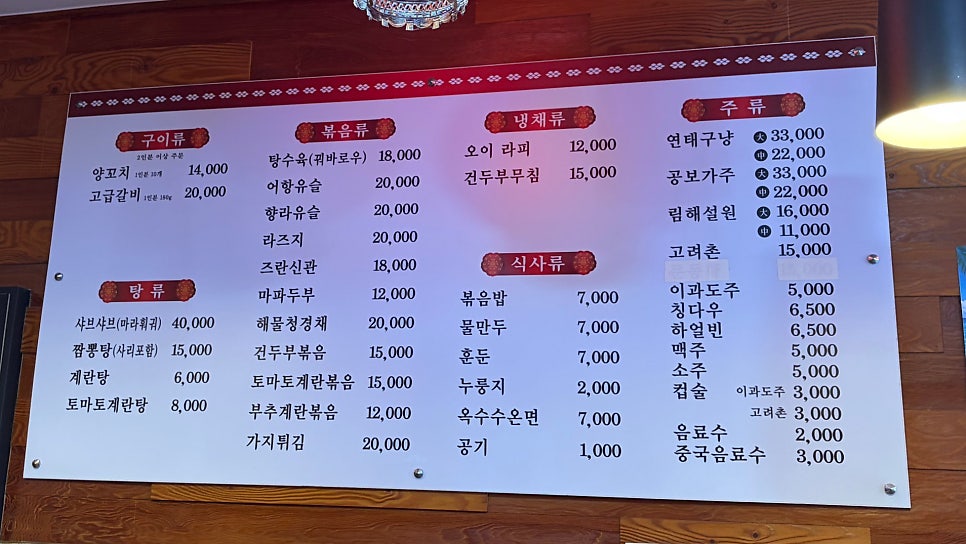 구이류
2인분 이상 주문
양꼬치 1인분 10개 14,000
고급갈비 1인분 180g 20,000
탕 류
샤브샤브(마라훠궈) 40,000
짬뽕탕(사리포함) 15,000
계란탕 6,000
토마토계란탕 8,000
볶음류
탕수육(꿔바로우) 18,000
어향유슬 20,000
향라유슬 20,000
라즈지 20,000
즈란신관 18,000
마파두부 12,000
해물청경채 20,000
건두부볶음 15,000
토마토계란볶음 15,000
부추계란볶음 12,000
가지튀김 20,000
냉채류
오이 라피 12,000
건두부무침 15,000
식사류
볶음밥 7,000
물만두 7,000
훈둔 7,000
누룽지 2,000
옥수수온면 7,000
공기 1,000
주 류
연태구냥 大 33,000
中 22,000
공보가주 大 33,000
中 22,000
림해설원 大 16,000
中 11,000
고려촌 15,000
이과도주 5,000
칭다우 6,500
하얼빈 6,500
맥주 5,000
소주 5,000
컵술 이과도주 3,000
고려촌 3,000
음료수 2,000
중국음료수 3,000